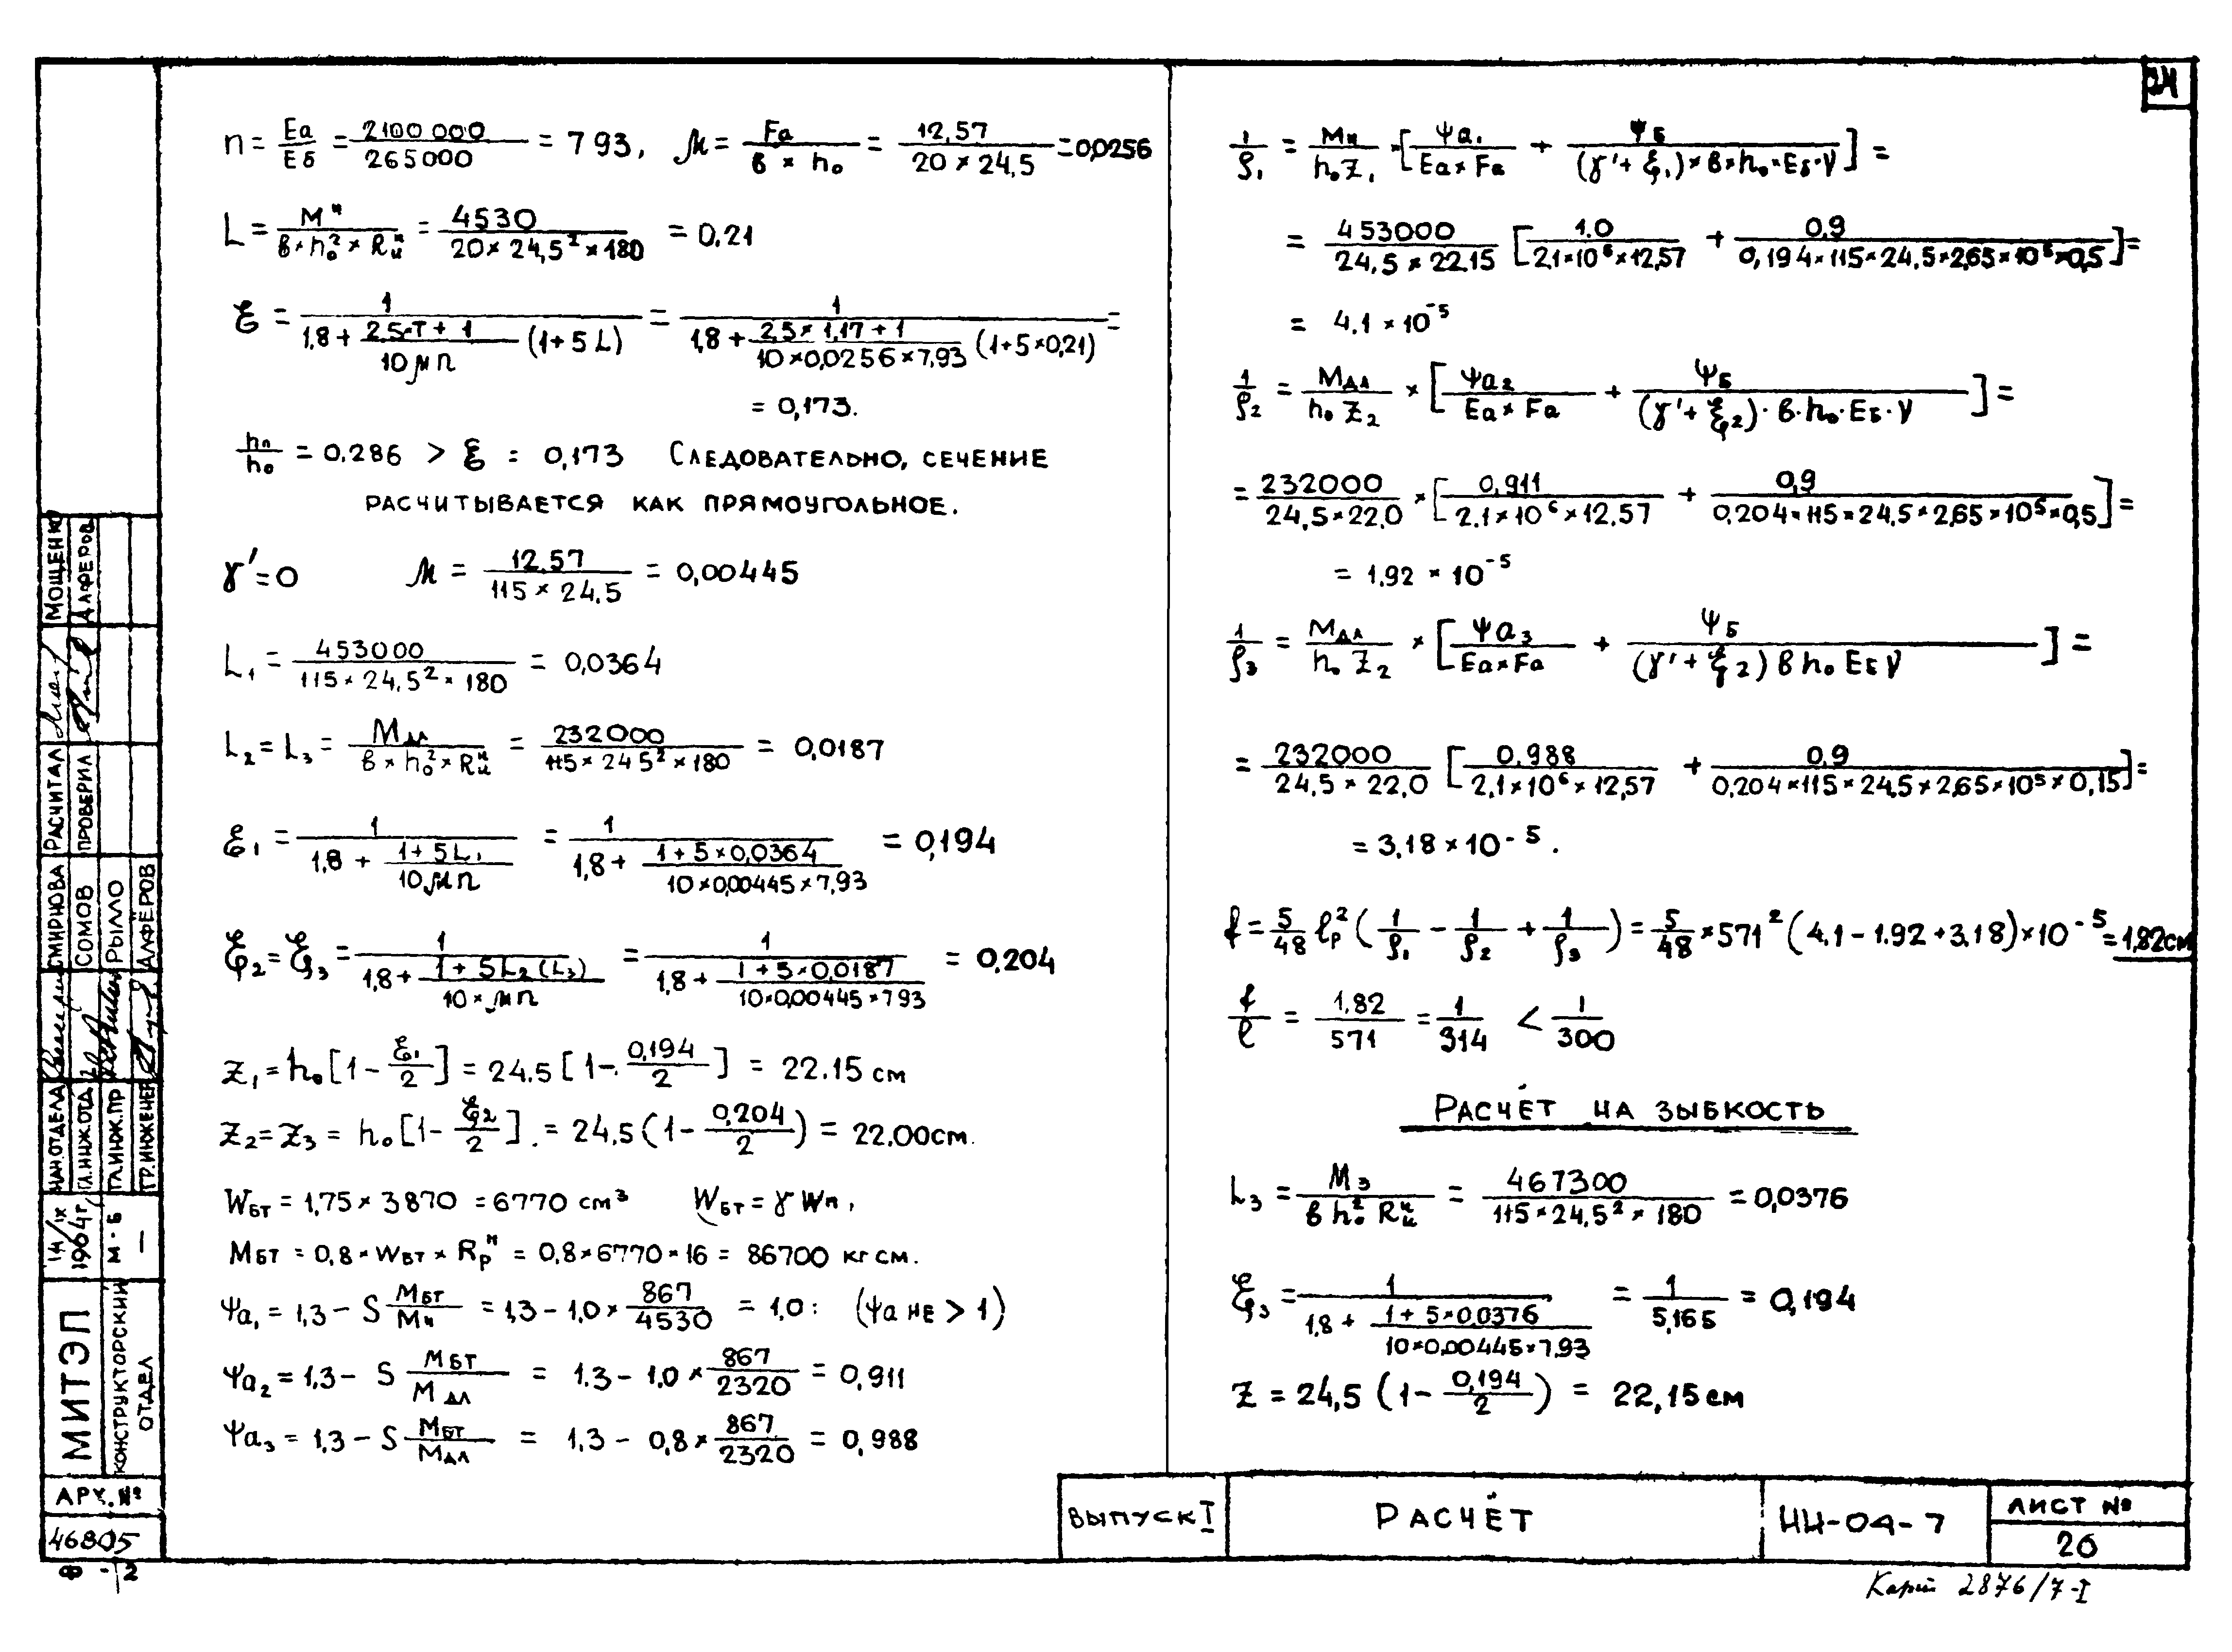 24
n = Eа/Eб = 2100 000/265000 = 793, μ = Fа/(в × h₀) = 12,57/(20 × 24,5) = 0,0256
L = Mᴴ/(в × h₀² × Rᴴи) = 4530/(20 × 24,5² × 180) = 0,21
ξ = 1/(1,8 + (2,5·T + 1)/(10 μ n) (1+5 L)) = 1/(1,8 + (2,5 × 1,17 + 1)/(10 × 0,0256 × 7,93) (1+5×0,21)) =
= 0,173.
hп/h₀ = 0.286 > ξ = 0,173 Следовательно, сечение
расчитывается как прямоугольное.
γ' = 0 μ = 12,57/(115 × 24,5) = 0,00445
L₁ = 453000/(115 × 24,5² × 180) = 0,0364
L₂ = L₃ = Mдл/(в × h₀² × Rᴴи) = 232000/(115 × 24 5² × 180) = 0,0187
ξ₁ = 1/(1,8 + (1 + 5L₁)/(10 μ n)) = 1/(1,8 + (1 + 5 × 0,0364)/(10 × 0,00445 × 7,93)) = 0,194
ξ₂ = ξ₃ = 1/(1,8 + (1 + 5L₂ (L₃))/(10 × μ n)) = 1/(1,8 + (1 + 5 × 0,0187)/(10×0,00445 × 793)) = 0,204
Z₁ = h₀ [1 - ξ₁/2] = 24.5 [1 - 0,194/2] = 22.15 см
Z₂ = Z₃ = h₀ [1 - ξ₂/2] = 24,5 (1 - 0,204/2) = 22.00см.
Wбт = 1,75 × 3870 = 6770 см³ Wбт = γ Wп,
Mбт = 0,8 × Wбт × Rрᴴ = 0,8 × 6770 × 16 = 86700 кг см.
ψа₁ = 1,3 - S Mбт/Mн = 1,3 - 1,0 × 867/4530 = 1,0: (ψа не > 1)
ψа₂ = 1,3 - S Mбт/Mдл = 1.3 - 1,0 × 867/2320 = 0,911
ψа₃ = 1,3 - S Mбт/Mдл = 1.3 - 0,8 × 867/2320 = 0,988
1/ρ₁ = Mн/(h₀Z₁) × [ψа₁/(Eа × Fа) + ψб/((γ' + ξ₁) × в × h₀ × Eб · ν)] =
= 453000/(24,5 × 22.15) [1.0/(2,1×10⁶×12,57) + 0,9/(0,194 × 115 × 24,5 × 2,65 × 10⁵ × 0,5)] =
= 4.1 × 10⁻⁵
1/ρ₂ = Mдл/(h₀ Z₂) × [ψа₂/(Eа × Fа) + ψб/((γ' + ξ₂) · в · h₀ · Eб · ν)] =
= 232000/(24,5 × 22,0) × [0,911/(2.1 × 10⁶ × 12,57) + 0,9/(0,204 × 115 × 24,5 × 2,65 × 10⁵ × 0,5)] =
= 1,92 × 10⁻⁵
1/ρ₃ = Mдл/(h₀ Z₂) × [ψа₃/(Eа × Fа) + ψб/((γ' + ξ₂) в h₀ Eб ν)] =
= 232000/(24,5 × 22,0) [0,988/(2,1 × 10⁶ × 12,57) + 0,9/(0,204 × 115 × 24,5 × 2,65 × 10⁵ × 0,15)] =
= 3,18 × 10⁻⁵.
f = 5/48 ℓр² (1/ρ₁ - 1/ρ₂ + 1/ρ₃) = 5/48 × 571² (4.1 - 1.92 + 3.18) × 10⁻⁵ = 1,82см
f/ℓ = 1,82/571 = 1/314 < 1/300
Расчёт на зыбкость
L₃ = Mз/(в h₀² Rᴴи) = 467300/(115 × 24,5² × 180) = 0,0376
ξ₃ = 1/(1,8 + (1 + 5×0,0376)/(10×0,00445 × 7,93)) = 1/5,165 = 0,194
Z = 24,5 (1 - 0,194/2) = 22,15см
Мощенко
Алферов
Расчитал
Проверил
Смирнова
Сомов
Рылло
Алфёров
Нач.отдела
Гл.инж.отд.
Гл.инж.пр
Гр.инженер
14/IX
1964г.
М-Б
—
МИТЭП
Конструкторский
отдел
Арх. №
46805
Ф - 12
Выпуск I
Расчёт
ИИ-04-7
Лист №
26
2876/7-I